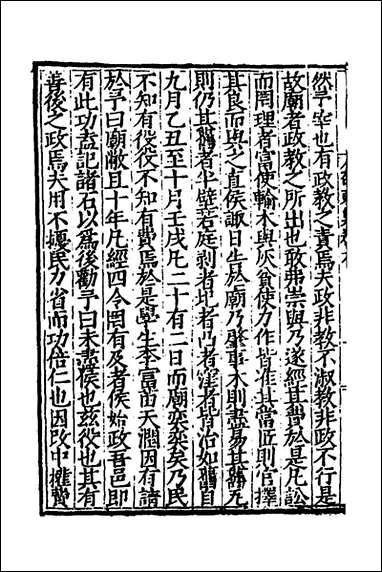 然予宰也有政教之責焉夫政非教不淑教非政不行是
故廟者政教之所出也敢弗崇與乃遂經其費於是凡訟
而罔理者富使輸木與灰貧使力作皆准其當匠則官擇
其良而與之直侯諏日告於廟乃肇事木則盡易其舊瓦
則仍其舊者半壁若庭剥者圮者凸者窪者皆治如舊自
九月乙丑至十月壬戌凡二十有二日而廟奕奕矣乃民
不知有役役不知有費焉於是學生李富苗天潤因有請
於予曰廟敝且十年凡經四令罔有及者侯始政吾邑即
有此功盍記諸石以為後勸予曰未盡侯也兹役也其有
善後之政焉夫用不擾民力省而功倍仁也因改中㩁費